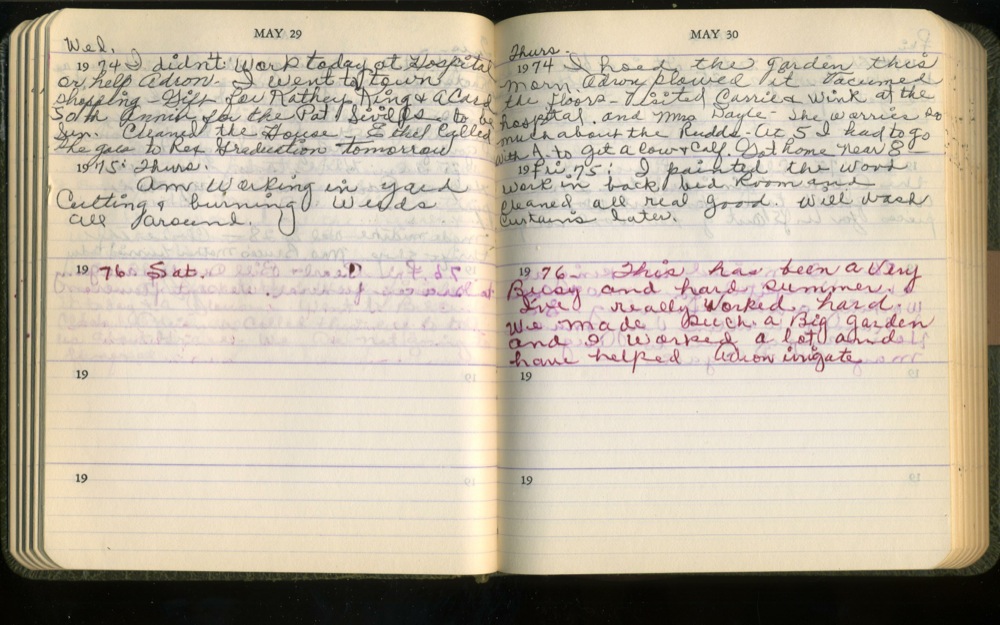 MAY 29
Wed.
1974 I didn't work today at Hospital
or help Adron. I went to town
shopping - Gift for Kathey King & a Card
50th Anni for the Pat Sivills to be
Sun. Cleaned the House. Ethel Called
She goes to Rex Graduation tomorrow
1975: Thurs.
Am Working in yard
Cutting & burning Weeds
all around.
1976 Sat.
19
19
MAY 30
Thurs.
1974 I hoed the garden this
morn. Adron plowed it. Vacumed
the floors - Visited Carrie & Wink at the
hospital. and Mrs Gayle - She worries so
much about the Rudds. At 5 I had to go
with A. to get a Cow & Calf. Got home near 8
19 Fri. 75: I painted the wood
work in back bed room and
cleaned all real good. Will wash
Curtains later.
1976 - This has been a very
Busy and hard summer.
I've really worked hard.
We made Such a Big garden
and I worked a lot and
have helped Adron irrigate
19
19